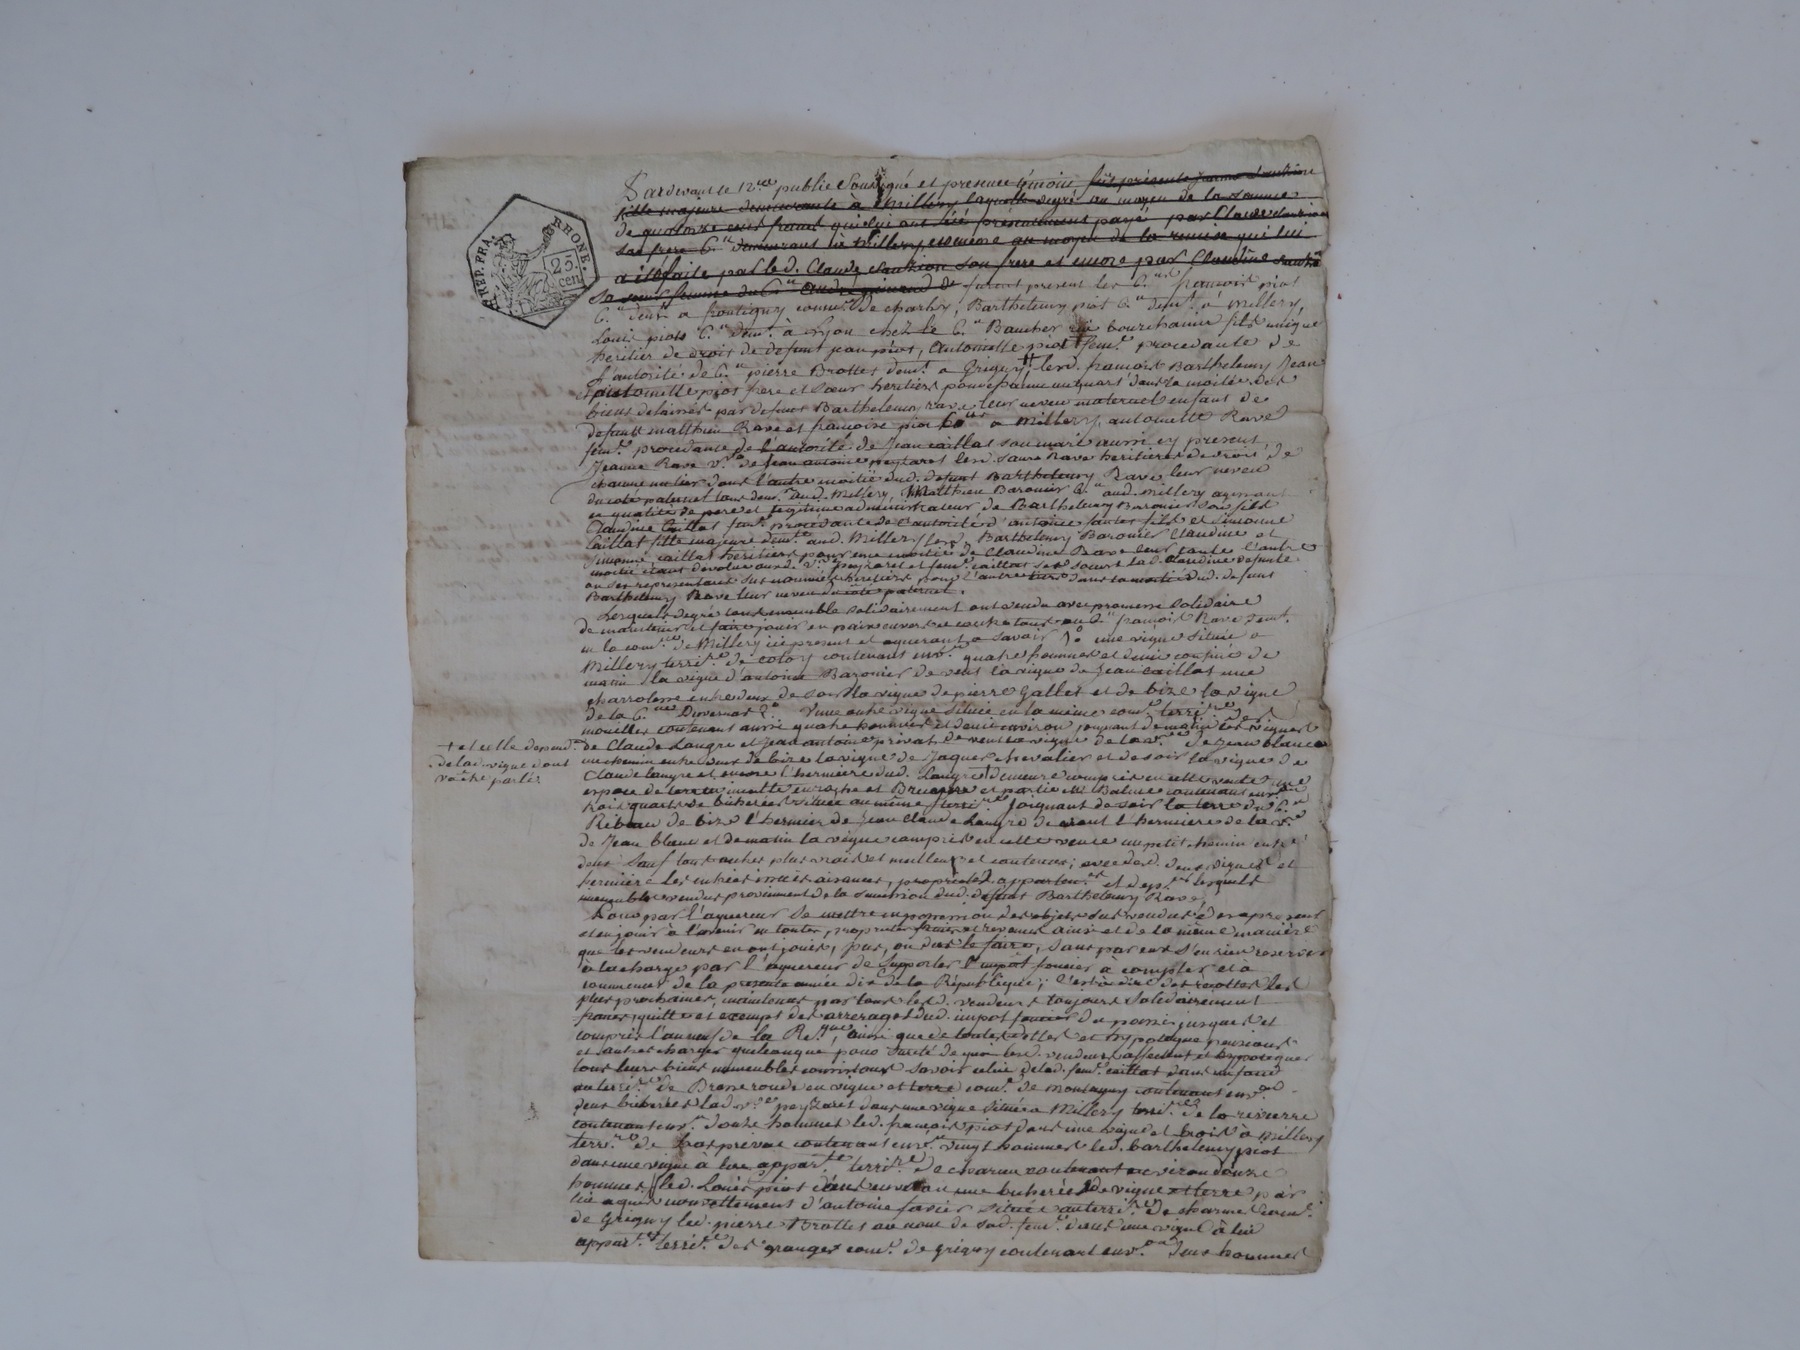 REP. FRA.
RHONE.
25 cen
Pardevant le 12.re public Soussigné et presence témoins fut présente Jeanne
fille majeure demeurante à Millery laquelle degré au moyen de la somme
de quatorze cent francs qui lui ont été présentement payé par Claude
son frere C.n demeurant à Millery, et encore au moyen de la remise qui lui
a été faite par led. Claude son frere et encore par Claudine
sa soeur femme du C.n furent present les C.ns françois piot
C.n dem.t a comm.e de charly, Barthelemy piot C.n dem.t à Millery,
Louis piot C.n dem.t à Lyon chez le C.n Baucher rue bourchanin fils unique
heritier de droit de defunt jean piot, antoinette piot fem.e procedante de
l'autorité de C.n pierre Brottet dem.t a Grigny, lesd. françois Barthelemy Jean
et antoinette piot frere et soeur heritiers pour chacun un quart dans la moitié des
biens delaissés par defunt Barthelemy rave leur neveu maternel enfant de
defunts matthieu Rave et françoise piot a Millery, antoinette Rave
fem.e procedante de l'autorité de Jean caillat son mari aussi cy present,
Jeanne Rave v.e de Jean antoine peyzaret lesd. soeurs Rave heritieres de droit de
chacune un tier dans l'autre moitié dud. defunt Barthelemy Rave leur neveu
du coté paternel tous dem.t aud. Millery, Matthieu Baronier C.n aud. millery agissant
en qualité de pere et legitime administrateur de Barthelemy Baronier son fils
Claudine Caillat fem.e procedante de l'autorité d'antoine fils et Simonne
Caillat fille majeure dem.te aud. Millery lesd. Barthelemy Baronier Claudine et
Simonne caillat heritiers pour une moitié de Claudine Rave leur tante l'autre
moitié étant devolue auxd. v.e peyzaret et fem.e caillat ses soeurs lad. Claudine defunte
ou ses representant sus nommés heritiers pour l'autre tiers dans la moitié dud. defunt
Barthelemy Rave leur neveu du coté paternel.
Lesquels degré tous ensemble solidairement ont vendu avec promesse solidaire
de maintenir et faire jouir en paix envers et contre tous au C.n françois Rave dem.t
en la com.e de Millery ici present et aquerant a savoir 1.o une vigne située a
Millery terri.re de cotoy contenant env.on quatre hommes et demi confiné de
matin la vigne d'antoine Baronier de vent la vigne de Jean Caillat une
charroterre entre deux de soir la vigne de pierre Gallet et de bize la vigne
de la C.ne Duvernat 2.o Une autre vigne située en la même com.e terri.re des
mouilles contenant aussi quatre hommes et demi environ joignant de matin les vignes
de Claude Langre et Jean antoine privat de vent la vigne de la v.ve de Jean blanc
un chemin entre deux de bize la vigne de Jaques chevalier et de soir la vigne de
Claude langre et encore l'hermiere dud. Langre + demeure compris en cette vente une
espace de terrein inculte en roche et Bruyere et partie en Balme contenant environ
trois quarts de bicherée située au même terri.re joignant de soir la terre du C.n
Ribaud de bize l'hermier de Jean Claude Langre de vent l'hermiere de la v.e
de Jean blanc et de matin la vigne comprise en cette vente un petit chemin entre
deux Sauf tous autres plus vrais et meilleurs et contenus; avec lesd. deux vignes et
hermière les entrées issues aisances, propriétés appartenances et dep.ces lesquels
immeubles vendus proviennent de la succession dud. defunt Barthelemy Rave,
Pour par l'aquereur se mettre en possession des objets sus vendus dès apresent
et en jouir à l'avenir en toutes proprietés fruits et revenus ainsi et de la même maniere
que les vendeurs en ont jouis, pus, ou dus le faire, sans par eux s'en rien reserver
a la charge par l'aquereur de supporter l'impôt foncier à compter et a
commencer de la presente année dix de la République; c'est à dire des recoltes les
plus prochaines, maintenus par tous lesd. vendeurs toujours Solidairement
francs, quitte et exempt des arrerages dud. impot foncier du passé jusques et
compris l'an neuf de la Re.que, ainsi que de toutes dettes et hypotheque pensions
et autres charges quelconque pour sureté de quoi lesd. vendeurs affectent et hypotequer
tous leurs biens immeubles communs Savoir celui de lad. fem.e caillat dans un fond
au terri.re de Brosse ronde en vigne et terre com.e de montagny contenant env.on
deux bicherées lad. v.e peyzaret dans une vigne située a Millery terri.re de la reverre
contenant env.on douze hommes led. françois piot dans une vigne et bois à Millery
terri.re de contenant env.on vingt hommes led. barthelemy piot
dans une vigne à lui appar.te terri.re de contenant environ douze
hommes, led. Louis piot dans environ une bicherée de vigne et terre par
lui aquis nouvellement d'antoine favier située au terri.re de charme com.e
de Grigny led. pierre Brottet au nom de sad. fem.e dans une vigne à lui
appar.te terri.re des granges com.e de grigny contenant env.on deux hommes
+ et celle dependt.
de lad. vigne dont
va etre parlé